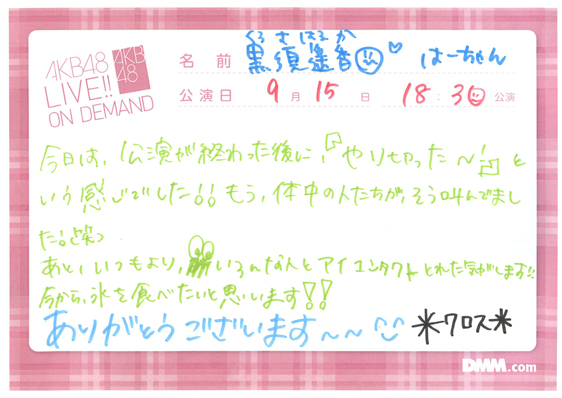 AKB48
LIVE!!
ON DEMAND
AKB
48
くろすはるか
名前 黒須遥香 はーちゃん
公演日 9月15日 18:30公演
今日は、公演が終わった後に、『やりきった〜!』と
いう感じでした!!もう、体中の人たちが、そう叫んでまし
た!笑
あと、いつもより、いろんな人とアイコンタクトとれた気がします!!
今から、氷を食べたいと思います!!
ありがとうございます〜〜
*クロス*
DMM.com